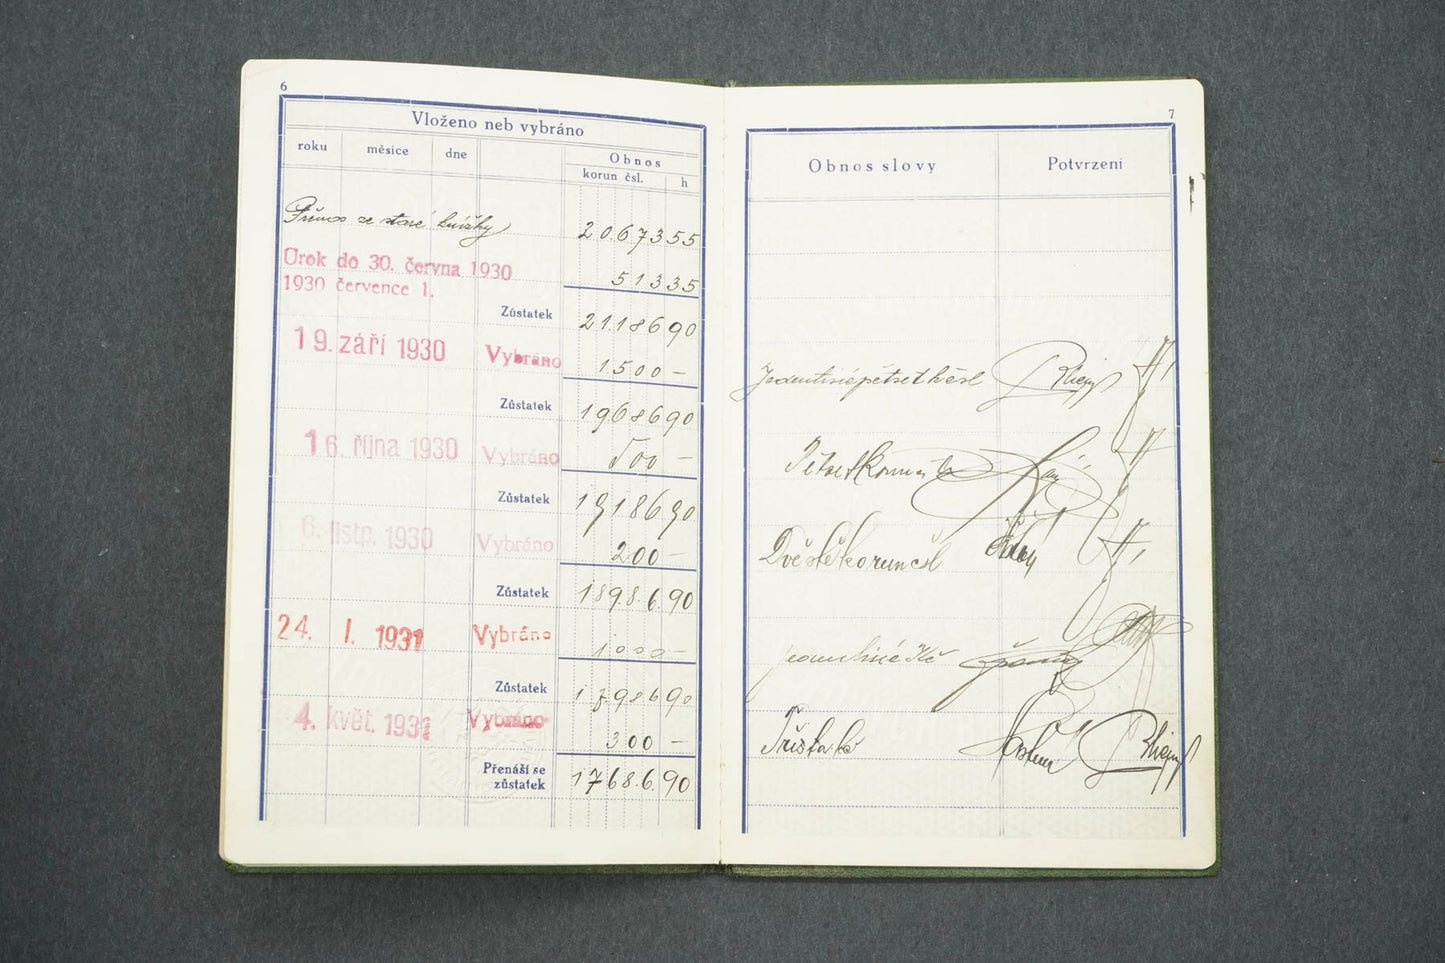 6
Vloženo neb vybráno
roku měsíce dne Obnos
korun čsl. h
Přenos ze staré knížky 20.673 55
Úrok do 30. června 1930 513 35
1930 července 1.
Zůstatek 21.186 90
19. září 1930 Vybráno 1.500 —
Zůstatek 19686 90
16. října 1930 Vybráno 500 —
Zůstatek 19186 90
6. listp. 1930 Vybráno 200 —
Zůstatek 18986 90
24. I. 1931 Vybráno 1000 —
Zůstatek 17986 90
4. květ. 1931 Vybráno 300 —
Přenáší se
zůstatek 17686 90
7
Obnos slovy Potvrzení
Jedentisícpětset Kčsl
Pětset korun
Dvěstě korun čsl
jedentisíc Kč
Třista kč